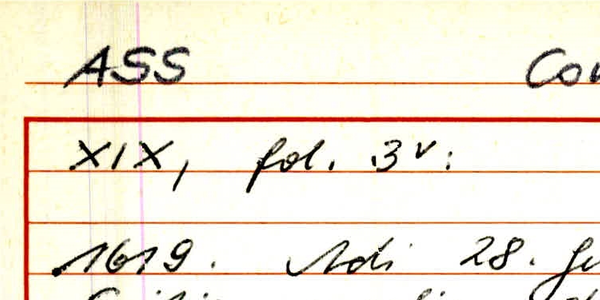 ASS Con
XIX, fol. 3v:
1619. Adi 28.